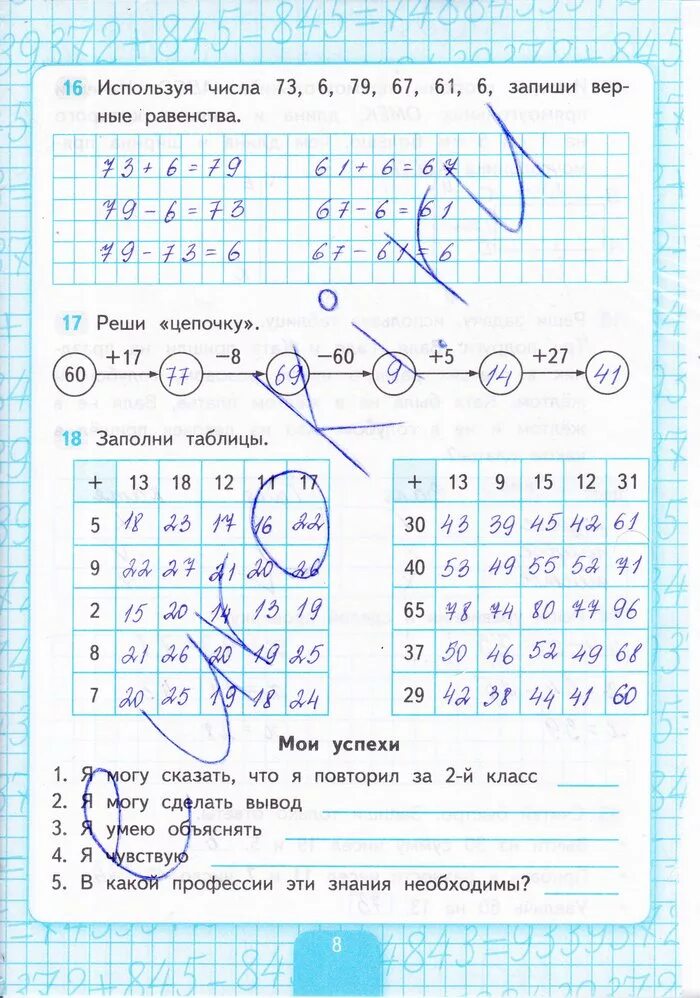 16 Используя числа 73, 6, 79, 67, 61, 6, запиши вер-
ные равенства.
73 + 6 = 79 61 + 6 = 67
79 - 6 = 73 67 - 6 = 61
79 - 73 = 6 67 - 61 = 6
17 Реши «цепочку».
+17 -8 -60 +5 +27
60 77 69 9 14 41
18 Заполни таблицы.
+ 13 18 12 11 17 + 13 9 15 12 31
5 18 23 17 16 22 30 43 39 45 42 61
9 22 27 21 20 26 40 53 49 55 52 71
2 15 20 14 13 19 65 78 74 80 77 96
8 21 26 20 19 25 37 50 46 52 49 68
7 20 25 19 18 24 29 42 38 44 41 60
Мои успехи
1. Я могу сказать, что я повторил за 2-й класс
2. Я могу сделать вывод
3. Я умею объяснять
4. Я чувствую
5. В какой профессии эти знания необходимы?
8